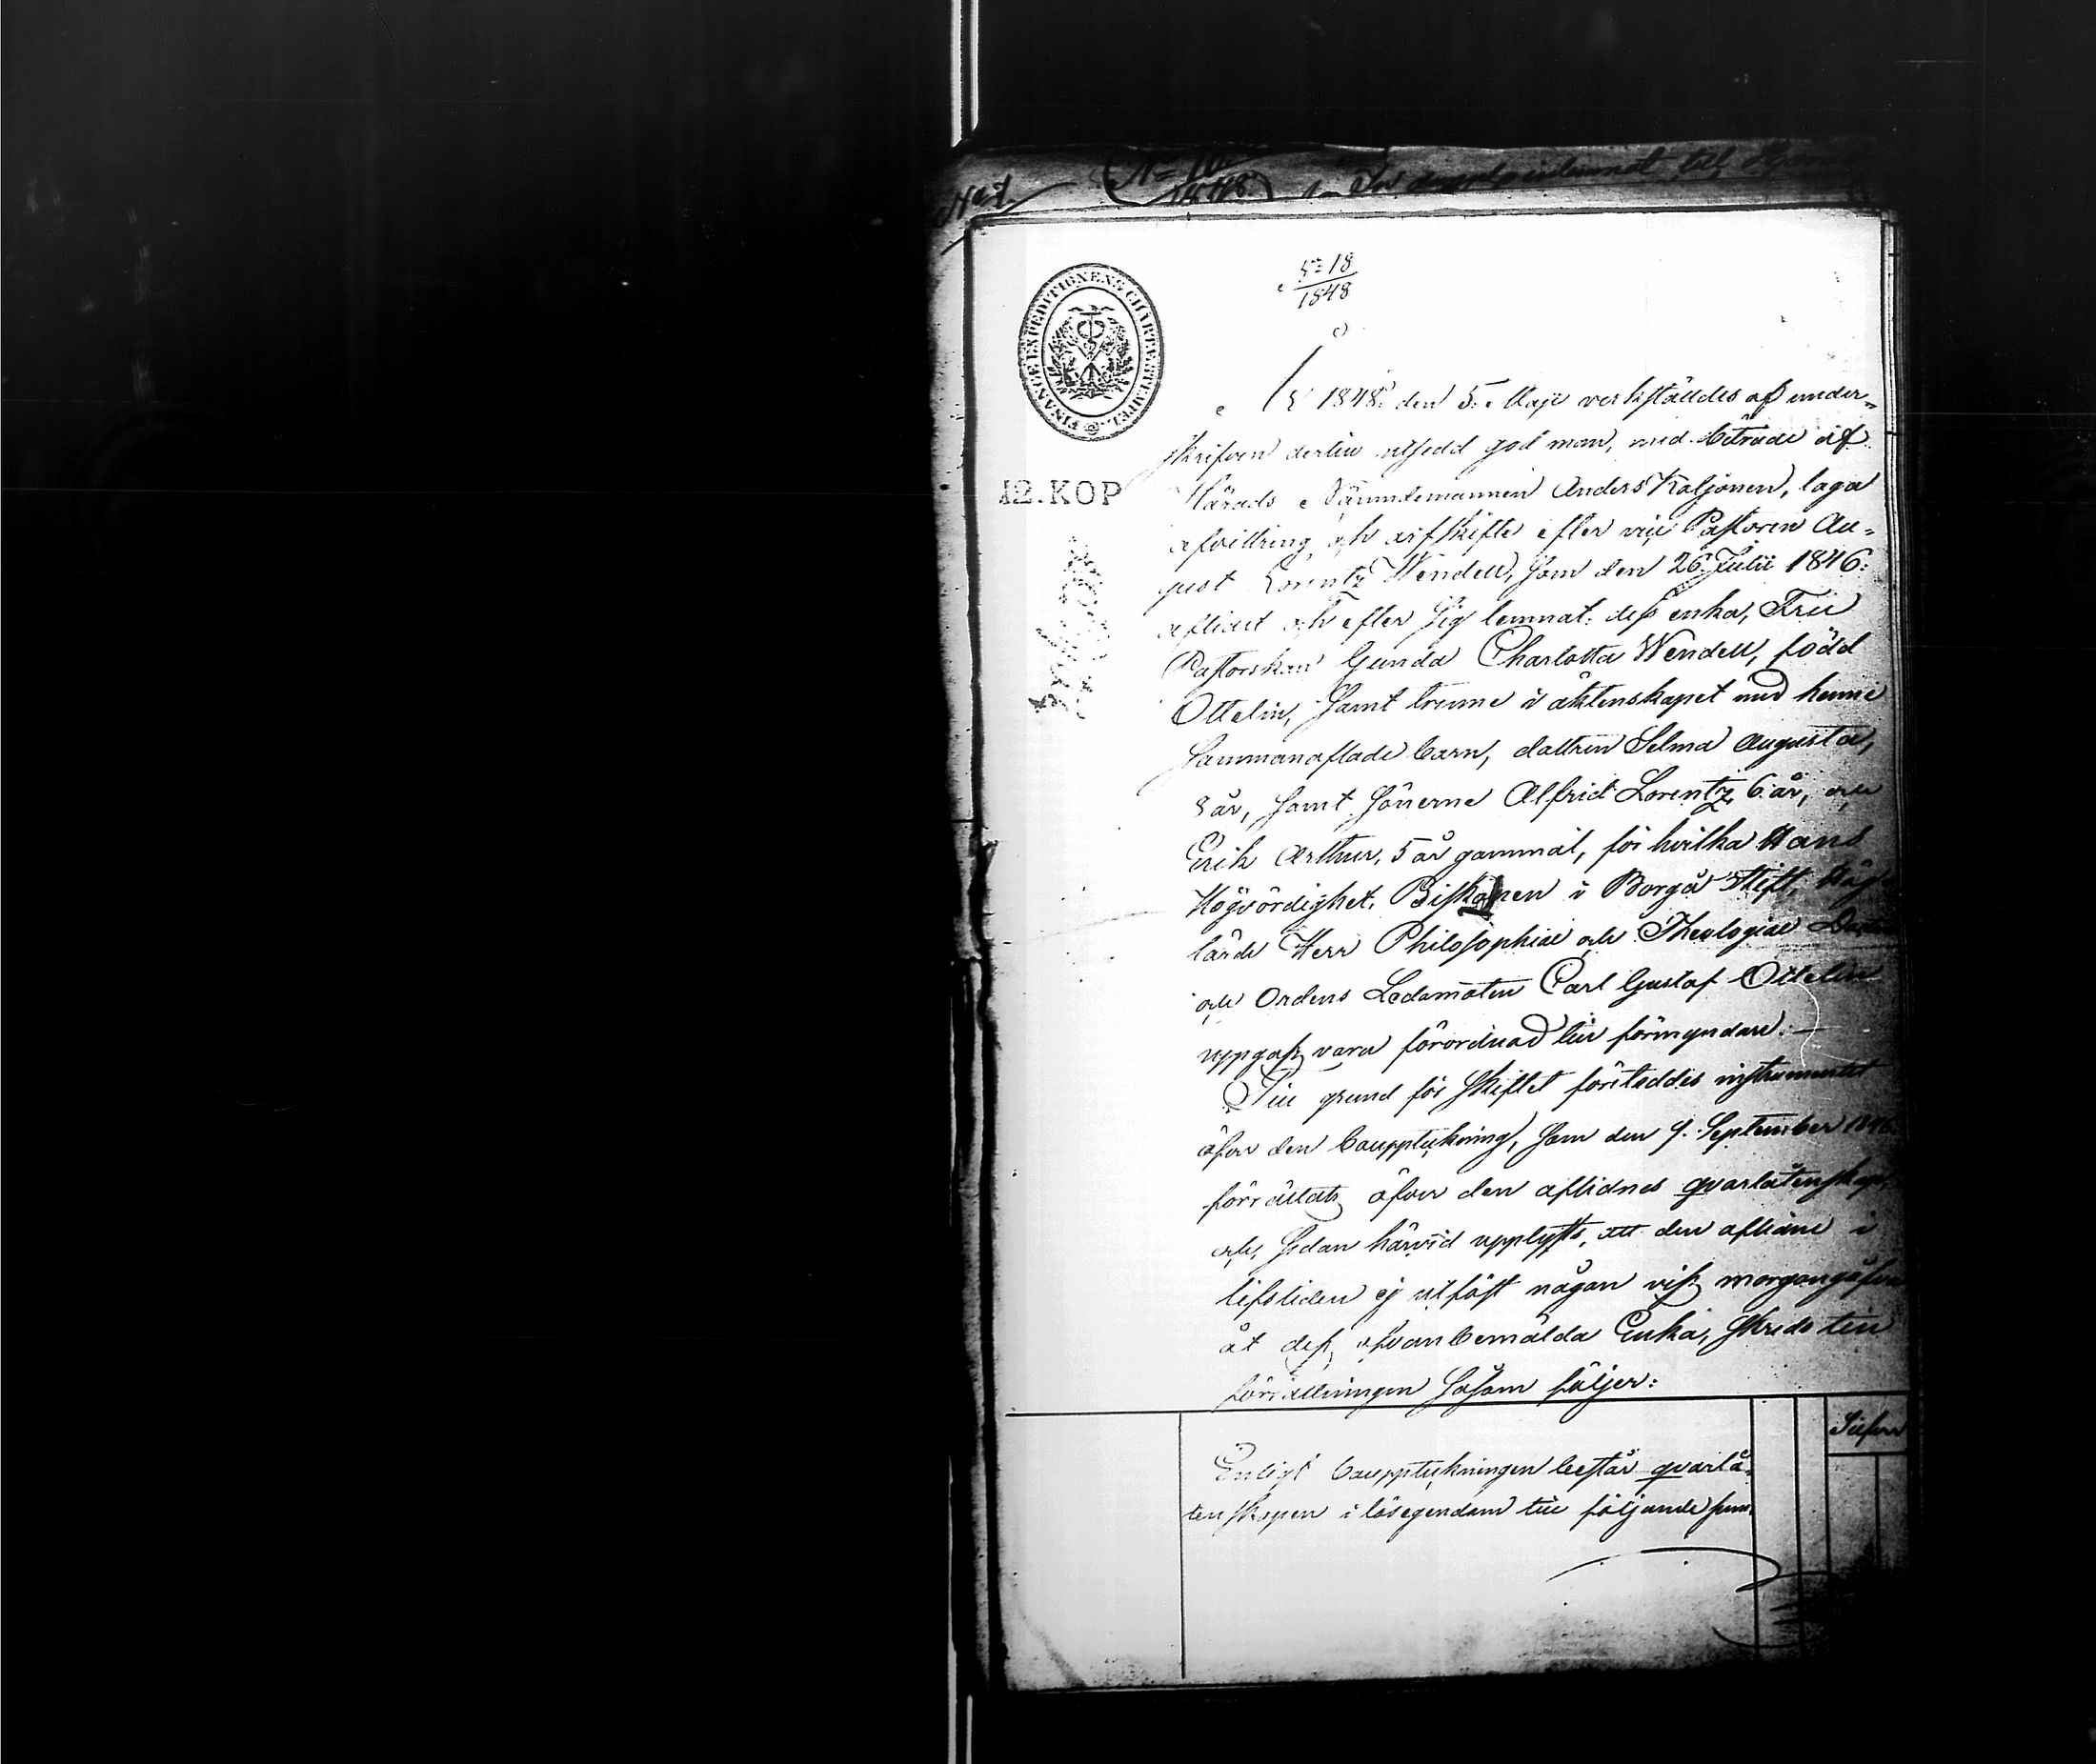 № 10
1848
5=18
1848
FINANCE EXPEDITIONENS CHARTÆ STEMPEL
12.KOP
År 1848. den 5. Maji verkställdes af under=
skrifven dertill utsedd god man, med biträde af
Härads Nämndemannen Anders Koljonen, laga
afvittring och arfskifte efter vice Pastoren Au=
gust Lorentz Wendell, som den 26 Julii 1846.
aflidit och efter sig lemnat. dess enka, Fru
Pastorskan Gunda Charlotta Wendell, född
Ottelin, samt trenne i äktenskapet med henne
sammanaflade barn, dottren Selma Augusta,
8 år, samt sönerne Alfrid Lorentz, 6 år, och
Erik Arthur, 5 år gammal, för hvilka Hans
Högvördighet, Biskopen i Borgå Stift, Hög
lärde Herr Philosophiæ och Theologiæ Doctorn
och Ordens Ledamoten Carl Gustaf Ottelin
uppgafs vara förordnad till förmyndare. —
Till grund för skiftet företeddes instrumentet
öfver den bouppteckning, som den 9. September 1846.
förrättats öfver den aflidnes qvarlåtenskap,
och, sedan härvid upplysts, att den aflidne i
lifstiden ej utfäst någon viss morgongåfva
åt dess ofvanbemälda Enka, skreds till
förrättningen såsom följer:
Silfver
Enligt bouppteckningen består qvarlå=
tenskapen i lösegendom till följande sum